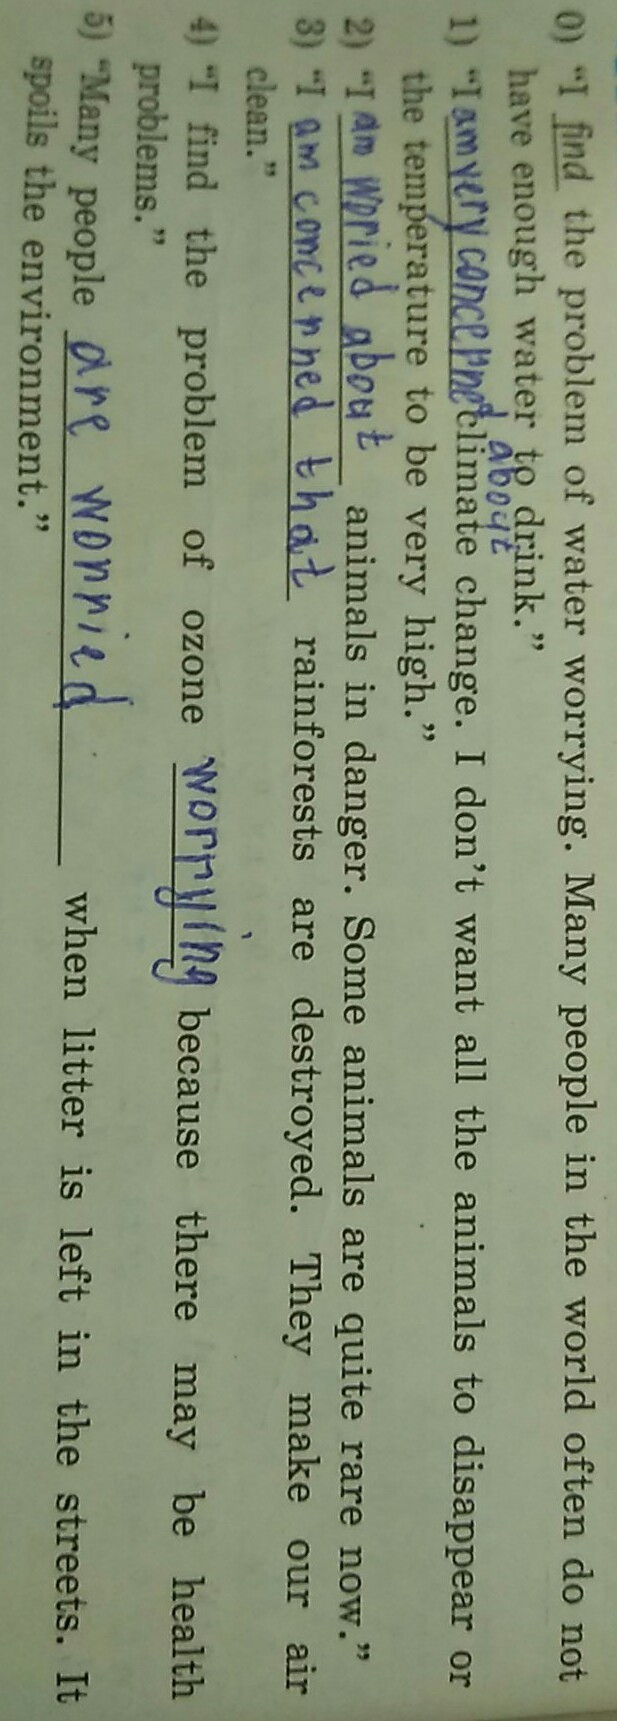 0) "I find the problem of water worrying. Many people in the world often do not
have enough water to drink."
1) "I am very concerned about climate change. I don't want all the animals to disappear or
the temperature to be very high."
2) "I am woried about animals in danger. Some animals are quite rare now."
3) "I am concerned that rainforests are destroyed. They make our air
clean."
4) "I find the problem of ozone worrying because there may be health
problems."
5) "Many people are worried when litter is left in the streets. It
spoils the environment."